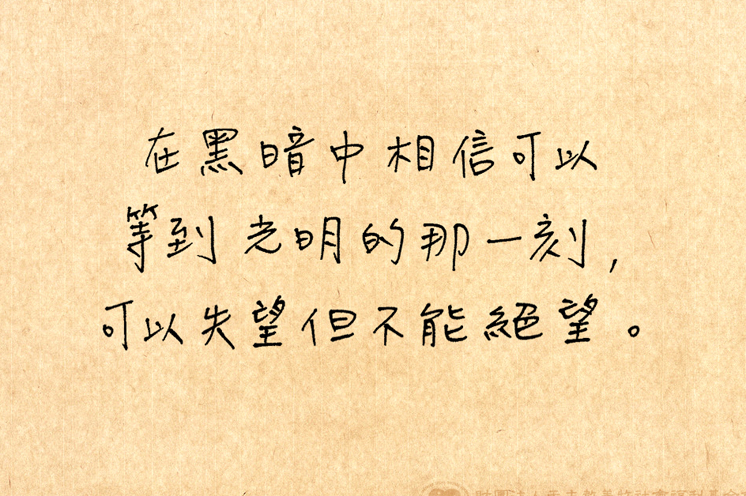 在黑暗中相信可以
等到光明的那一刻,
可以失望但不能絕望。